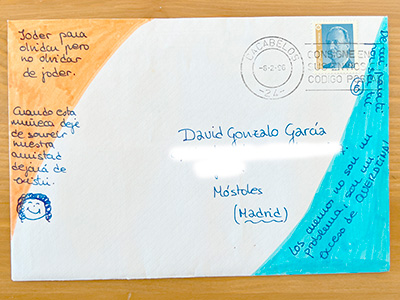 Joder para
olvidar pero
no olvidar
de joder.
Cuando esta
muñeca deje
de sonreir
nuestra
amistad
dejará de
existir.
CACABELOS
-8-2-00
-24-
CONSIGNE EN
SUS ENVIOS
CODIGO POST
6
David Gonzalo García
Móstoles
(Madrid)
Los cuernos no son un
problema; son un
exceso de